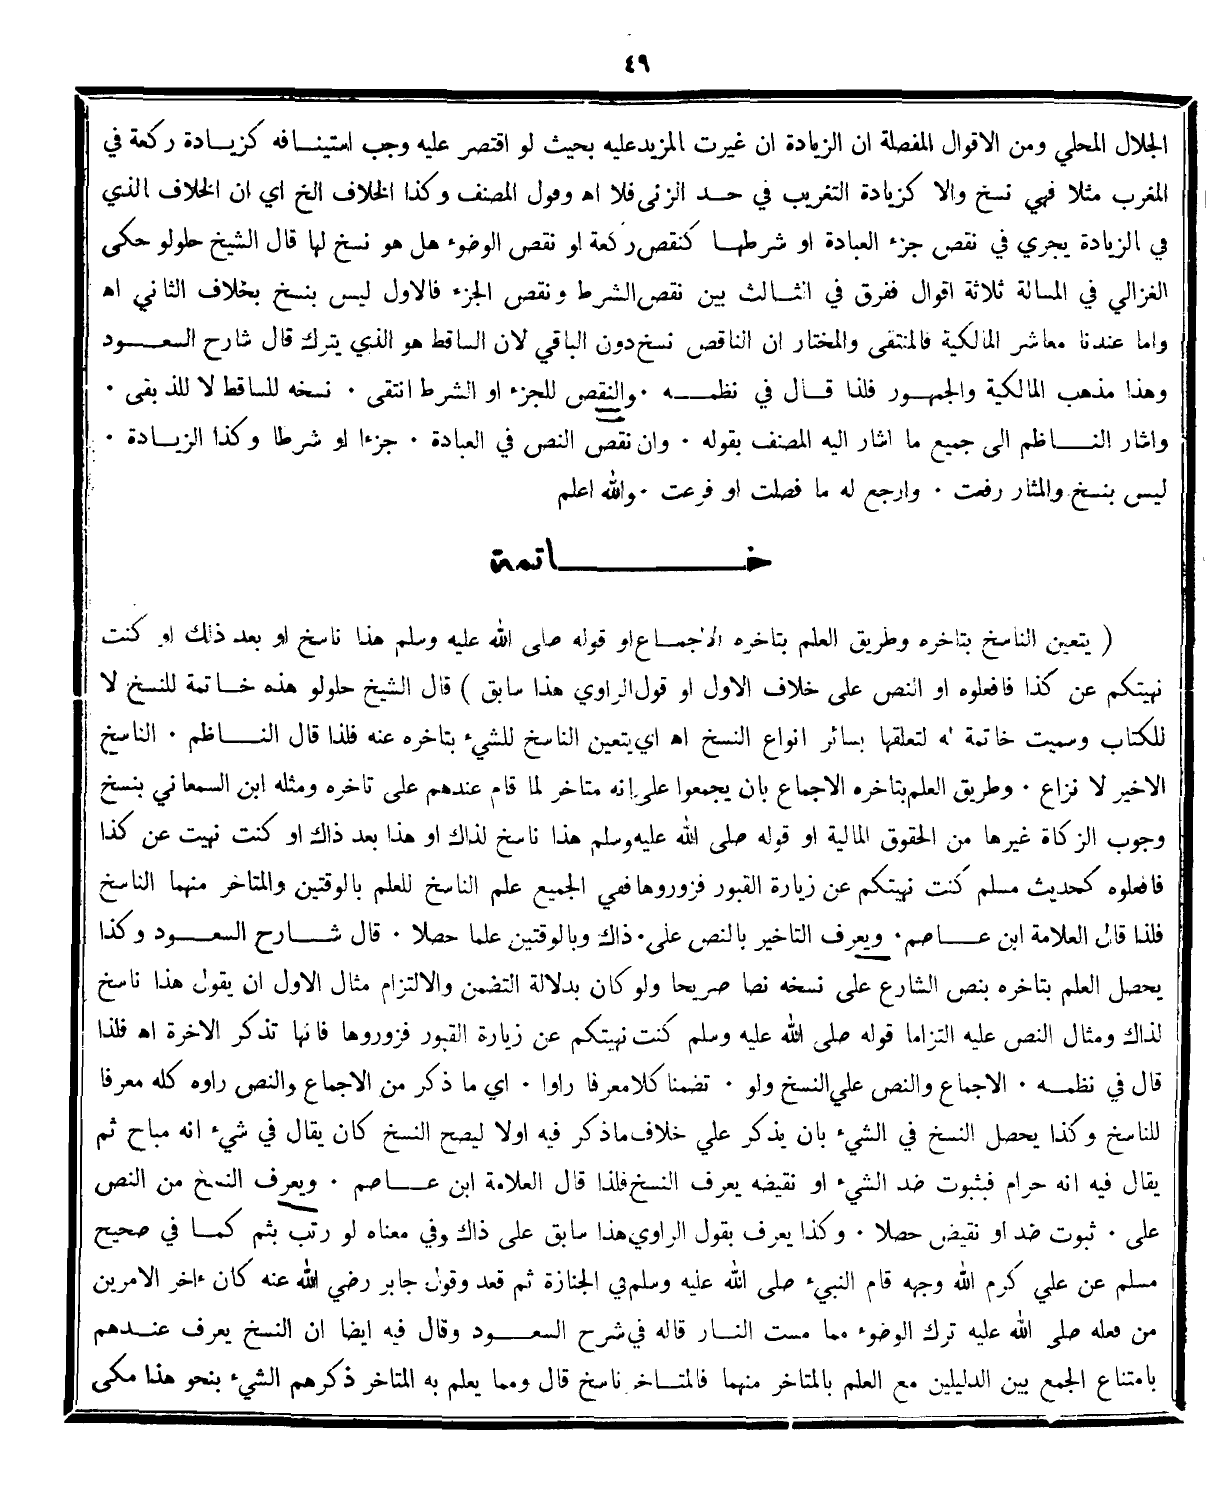 ٤٩
الجلال المحلي ومن الاقوال المفصلة ان الزيادة ان غيرت المزيد عليه بحيث لو اقتصر عليه وجب استينافه كزيادة ركعة في
المغرب مثلا فهي نسخ والا كزيادة التغريب في حد الزنى فلا اه وقول المصنف وكذا الخلاف الخ اي ان الخلاف الذي
في الزيادة يجري في نقص جزء العبادة او شرطها كنقص ركعة او نقص الوضوء هل هو نسخ لها قال الشيخ حلولو حكى
الغزالي في المسالة ثلاثة اقوال ففرق في الثالث بين نقص الشرط ونقص الجزء فالاول ليس بنسخ بخلاف الثاني اه
واما عندنا معاشر المالكية فالمنتقى والمختار ان الناقص نسخ دون الباقي لان الساقط هو الذي يترك قال شارح السعود
وهذا مذهب المالكية والجمهور فلذا قال في نظمه ٠ والنقص للجزء او الشرط انتقى ٠ نسخه للساقط لا للذ بقى ٠
واشار الناظم الى جميع ما اشار اليه المصنف بقوله ٠ وان نقص النص في العبادة ٠ جزءا او شرطا وكذا الزيادة ٠
ليس بنسخ والمثار رفعت ٠ وارجع له ما فصلت او فرعت ٠ والله اعلم
خاتمة
( يتعين الناسخ بتاخره وطريق العلم بتاخره الاجماع او قوله صلى الله عليه وسلم هذا ناسخ او بعد ذلك او كنت
نهيتكم عن كذا فافعلوه او النص على خلاف الاول او قول الراوي هذا سابق ) قال الشيخ حلولو هذه خاتمة للنسخ لا
للكتاب وسميت خاتمة له لتعلقها بسائر انواع النسخ اه اي يتعين الناسخ للشيء بتاخره عنه فلذا قال الناظم ٠ الناسخ
الاخير لا نزاع ٠ وطريق العلم بتاخره الاجماع بان يجمعوا على انه متاخر لما قام عندهم على تاخره ومثله ابن السمعاني بنسخ
وجوب الزكاة غيرها من الحقوق المالية او قوله صلى الله عليه وسلم هذا ناسخ لذاك او هذا بعد ذاك او كنت نهيت عن كذا
فافعلوه كحديث مسلم كنت نهيتكم عن زيارة القبور فزوروها ففي الجميع علم الناسخ للعلم بالوقتين والمتاخر منهما الناسخ
فلذا قال العلامة ابن عاصم ٠ ويعرف التاخير بالنص على ٠ ذاك وبالوقتين علما حصلا ٠ قال شارح السعود وكذا
يحصل العلم بتاخره بنص الشارع على نسخه نصا صريحا ولو كان بدلالة التضمن والالتزام مثال الاول ان يقول هذا ناسخ
لذاك ومثال النص عليه التزاما قوله صلى الله عليه وسلم كنت نهيتكم عن زيارة القبور فزوروها فانها تذكر الاخرة اه فلذا
قال في نظمه ٠ الاجماع والنص على النسخ ولو ٠ تضمنا كلا معرفا راوا ٠ اي ما ذكر من الاجماع والنص راوه كله معرفا
للناسخ وكذا يحصل النسخ في الشيء بان يذكر علي خلاف ماذكر فيه اولا ليصح النسخ كان يقال في شيء انه مباح ثم
يقال فيه انه حرام فبثبوت ضد الشيء او نقيضه يعرف النسخ فلذا قال العلامة ابن عاصم ٠ ويعرف النسخ من النص
على ٠ ثبوت ضد او نقيض حصلا ٠ وكذا يعرف بقول الراوي هذا سابق على ذاك وفي معناه لو رتب بثم كما في صحيح
مسلم عن علي كرم الله وجهه قام النبيء صلى الله عليه وسلم في الجنازة ثم قعد وقول جابر رضي الله عنه كان ءاخر الامرين
من فعله صلى الله عليه ترك الوضوء مما مست النار قاله في شرح السعود وقال فيه ايضا ان النسخ يعرف عندهم
بامتناع الجمع بين الدليلين مع العلم بالمتاخر منهما فالمتاخر ناسخ قال ومما يعلم به المتاخر ذكرهم الشيء بنحو هذا مكى